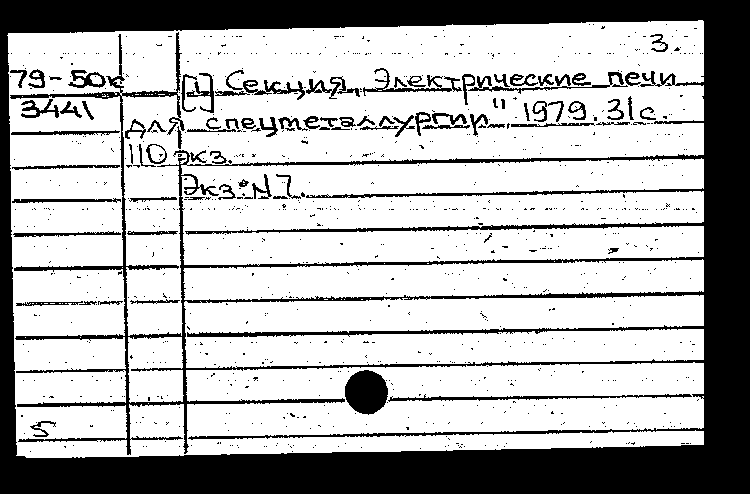 3.
79-50к [1] Секция „Электрические печи
3441 для спецметаллургии" 1979. 31с.
110 экз.
Экз: N 7.
5